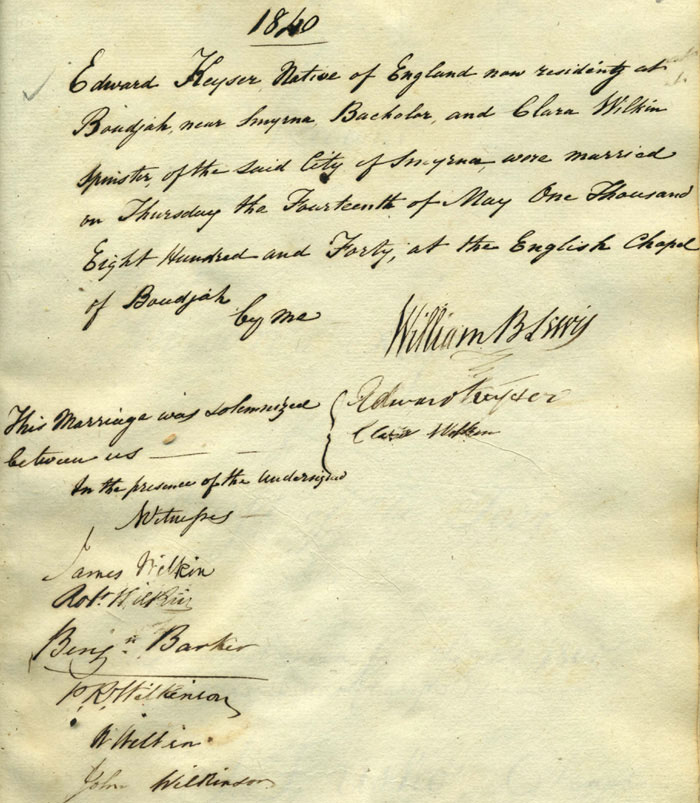 1840
Edward Keyser, Native of England now residing at
Boudjah, near Smyrna, Bachelor, and Clara Wilkin
Spinster, of the said City of Smyrna, were married
on Thursday the Fourteenth of May One Thousand
Eight Hundred and Forty, at the English Chapel
of Boudjah
by me
William B Lewis
This Marriage was solemnized
between us — — -
Edward Keyser
Clara Wilkin
In the presence of the Undersigned
Witnesses —
James Wilkin
Robt Wilkin
Benjn. Barker
P. R. Wilkinson
R Wilkin
John Wilkinson